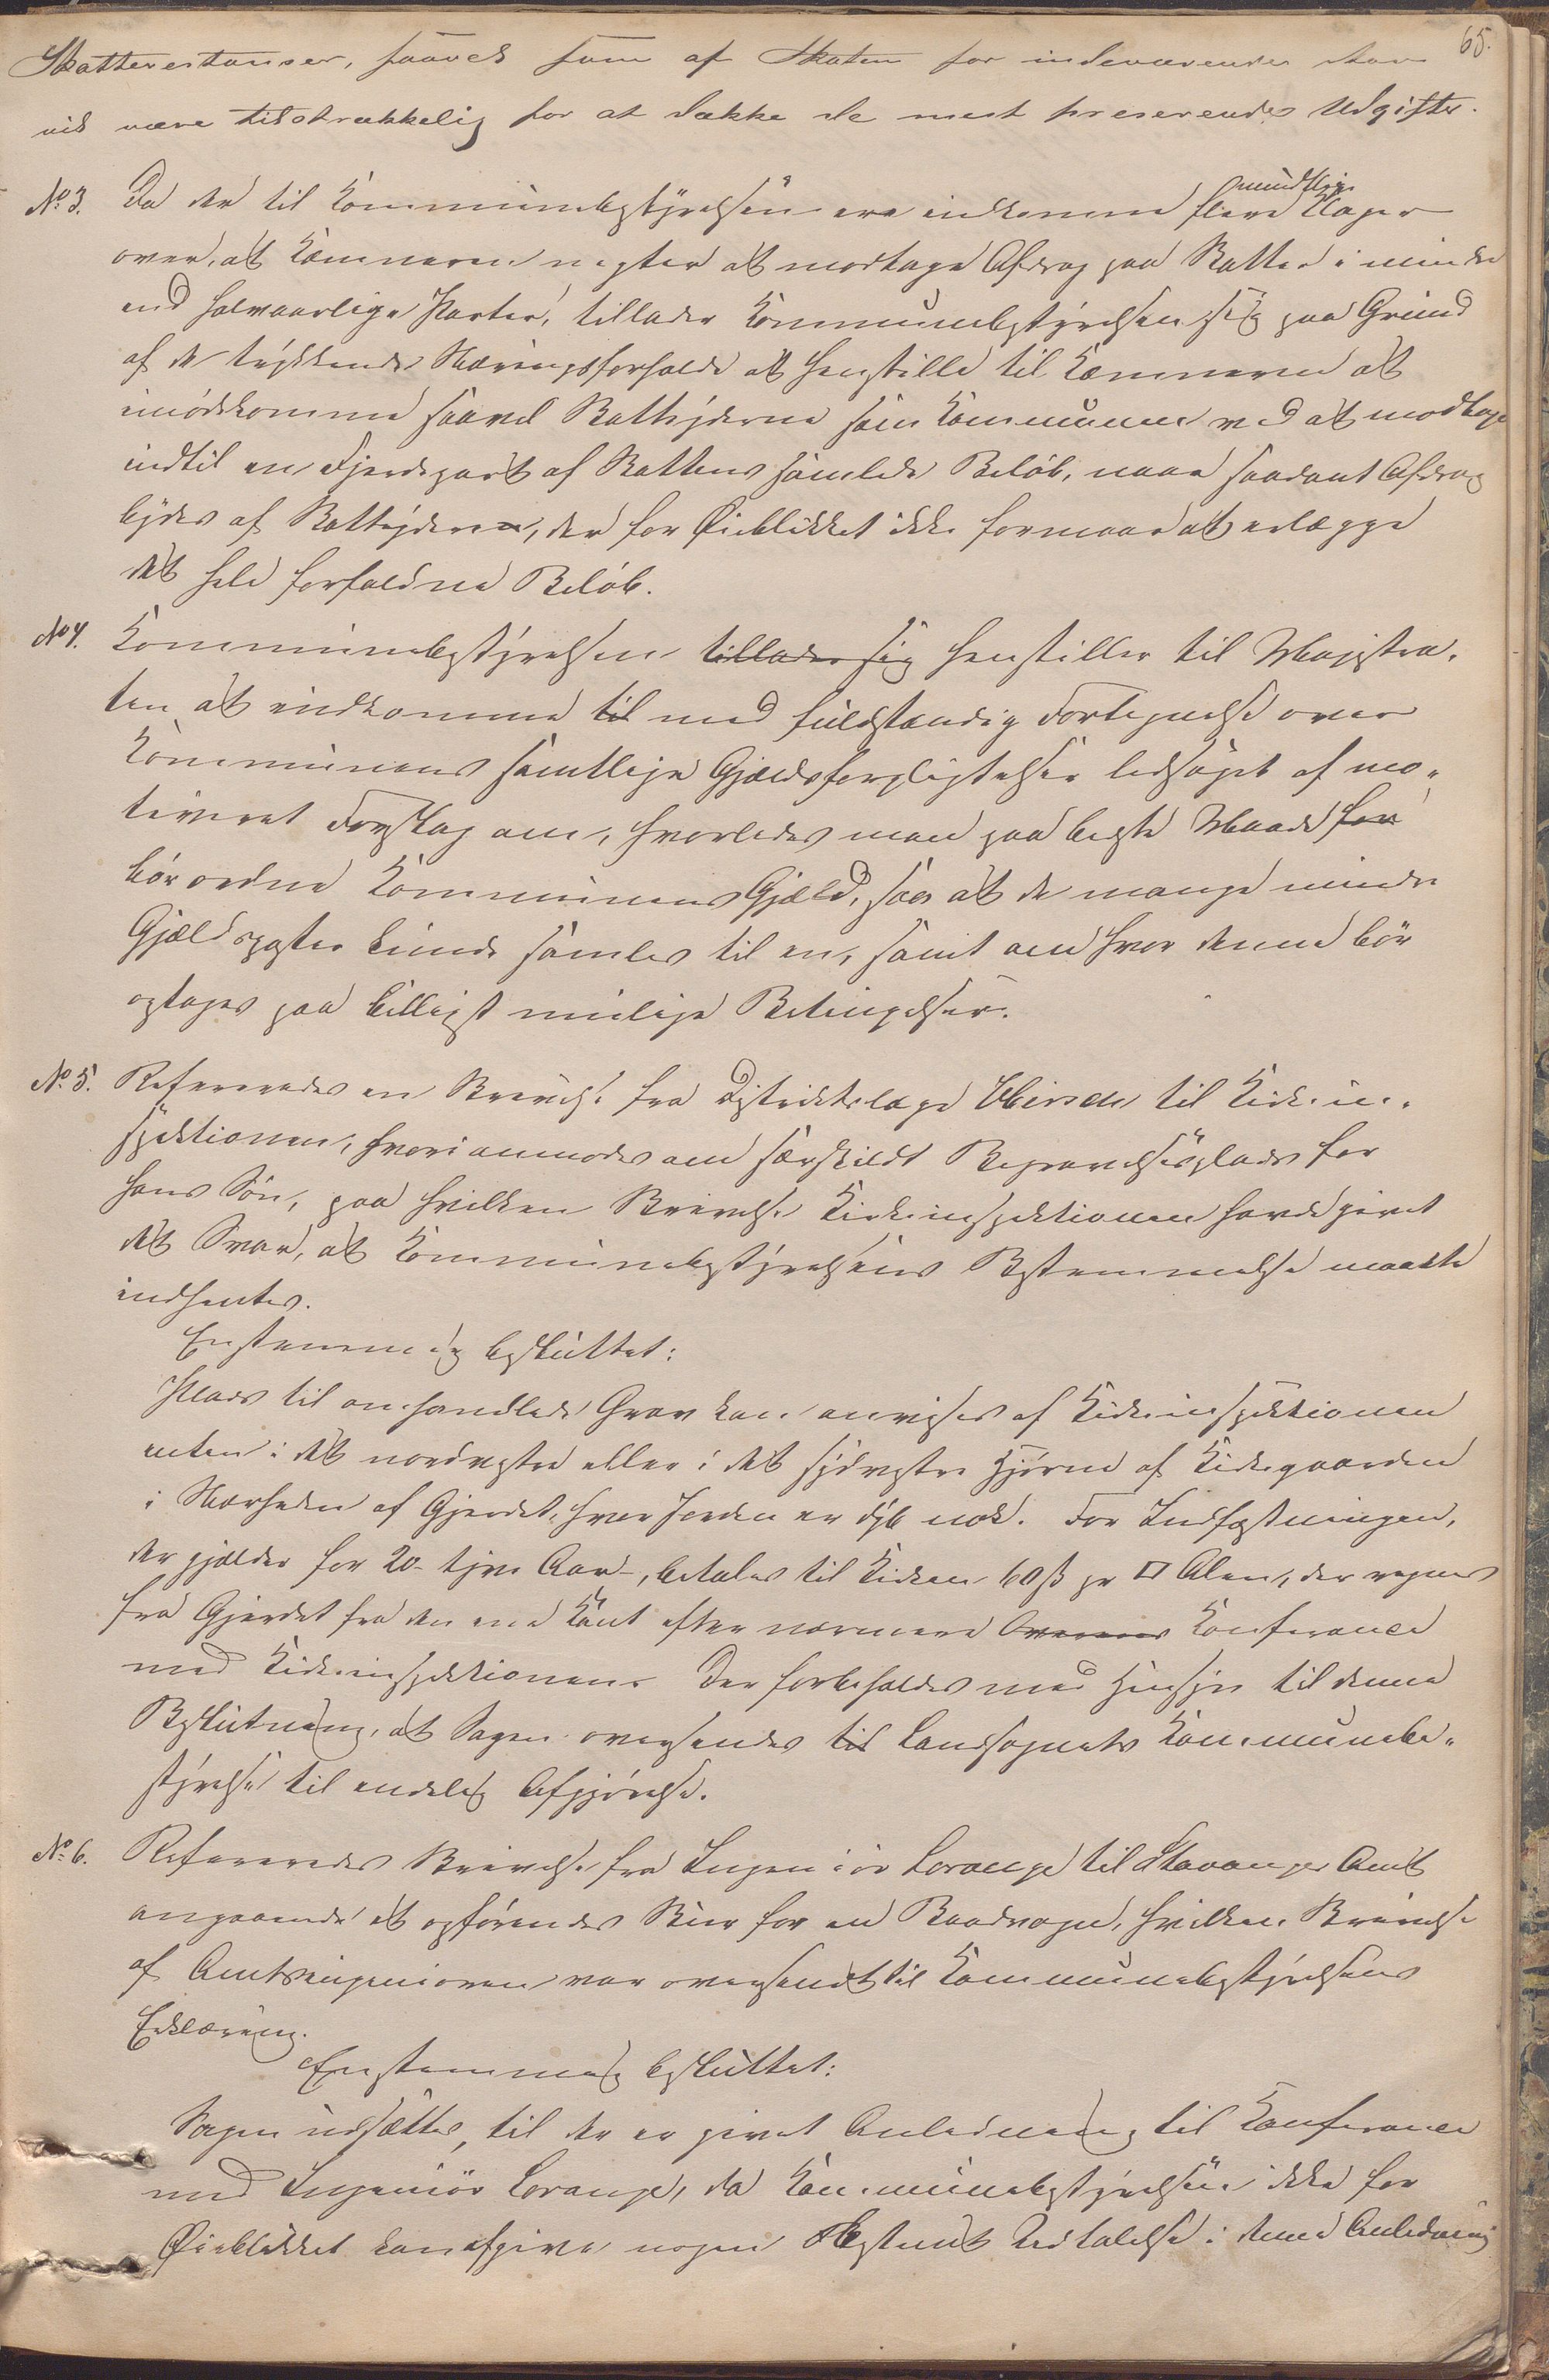 65.
Skatterestanser, saavel som af Skaten for indeværende Aar
vil være tilstrækkelig for at dække de mest preserende Udgifter.
No 3. Da der til Kommunebestyrelsen ere indkomne flere mundtlige Klager
over, at Kæmneren negter at modtage Afdrag paa Skatter i mindre
end halvaarlige Parter, tillader Kommunebestyrelsen sig paa Grund
af de trykkende Næringsforholde at henstille til Kæmneren at
imødekomme saavel Skatteyderne som Kommunen ved at modtage
indtil en Fjerdepart af Skattens samlede Beløb, naar saadant Afdrag
bydes af Skatteydere, der for Øieblikket ikke formaar at erlægge
det hele forfaldne Beløb.
No 4. Kommunebestyrelsen tillader sig henstiller til Magistra-
ten at indkomme til med fuldstændig Fortegnelse over
Kommunens samtlige Gjældsforpligtelser ledsaget af mo-
tiveret Forslag om, hvorledes man paa bedste Maade for
bør ordne Kommunens Gjæld, saa at de mange mindre
Gjældsposter kunde samles til en, samt om hvor denne bør
optages paa billigst mulige Betingelser.
No. 5. Refereredes en Skrivelse fra Distriktslæge til Kirkein-
spektionen, hvori anmodes om særskildt Begravelsesplads for
hans Søn, paa hvilken Skrivelse Kirkeinspektionen havde givet
det Svar, at Kommunebestyrelsens Bestemmelse maatte
indhentes.
Enstemmig besluttet:
Plads til omhandlede Grav kan anvises af Kirkeinspektionen
enten i det nordvestre eller i det sydvestre Hjørne af Kirkegaarden
i Nærheden af Gjerdet, hvor Jorden er dyb nok. For Indfæstningen,
der gjælder for 20 - tyve Aar -, betales til Kirken 60 ß pr □ Alen, der regnes
fra Gjerdet fra den ene Kant efter nærmere Overens Konferance
med Kirkeinspektionen. Der forbeholdes med Hensyn til denne
Beslutning, at Sagen oversendes til Landsognets Kommunebe-
styrelse til endelig Afgjørelse.
No. 6. Refereredes Skrivelse fra Ingeniør Lorange til Stavanger Amt
angaaende et opførendes Skur for en Baadvogn, hvilken Skrivelse
af Amtsingeniøren var oversendt til Kommunebestyrelsens
Erklæring.
Enstemmig besluttet:
Sagen udsættes, til der er givet Anledning til Konferance
med Ingeniør Lorange, da Kommunebestyrelsen ikke for
Øieblikket kan afgive nogen bestemt Udtalelse i denne Anledning